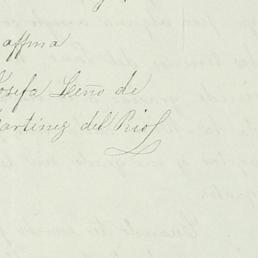 affma
Josefa Leño de
Martinez del Rio